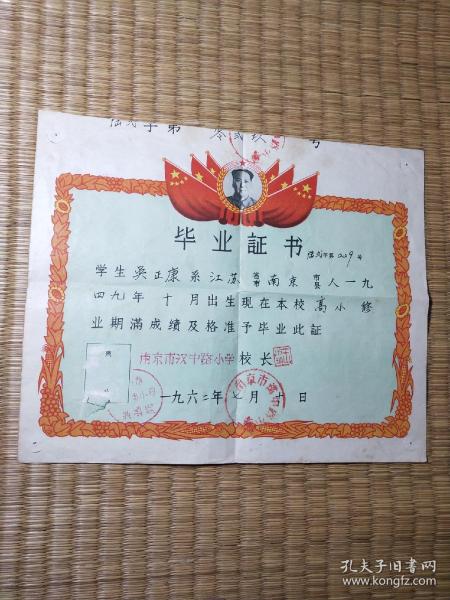 伍弍字第 零弍玖 号
毕业証书
伍弍字第029号
学生吴正康系江苏省市南京市县人一九
四九年十月出生现在本校高小修
业期滿成绩及格准予毕业此証
南京市汉中路小学校长
一九六二年七月十日
孔夫子旧书网
www.kongfz.com